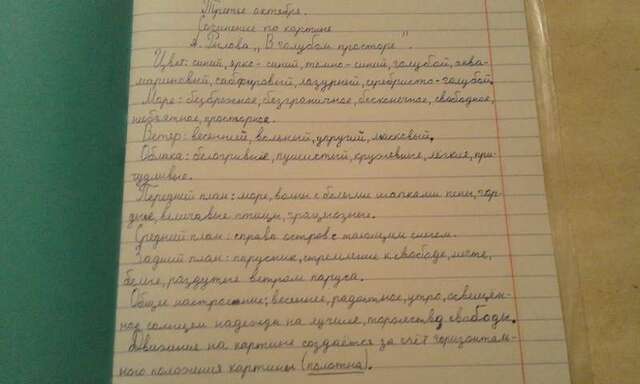 Третье октября.
Сочинение по картине
А. Рылова „В голубом просторе".
Цвет: синий, ярко-синий, темно-синий, голубой, аква-
мариновый, сапфировый, лазурный, серебристо-голубой.
Море: безбрежное, безграничное, бесконечное, свободное,
необъятное, просторное.
Ветер: весенний, вольный, упругий, ласковый.
Облака: белогривые, пушистый, кружевные, лёгкие, при-
чудливые.
Передний план: море, волны с белыми шапками пены, гор-
дые, величавые птицы, грациозные.
Средний план: справа остров с тающим снегом.
Задний план: парусник, стремление к свободе, мечте,
белые, раздутые ветром паруса.
Общее настроение: весеннее, радостное, утро, освещён-
ное солнцем надежды на лучшее, торжество свободы.
Движение на картине создаётся за счёт горизонталь-
ного положения картины (полотна).